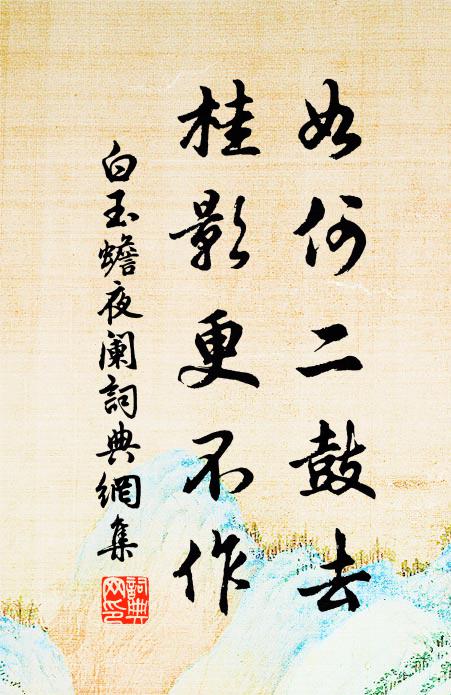 如何二鼓去
桂影更不作
白玉蟾夜阑詞典網集
詞典網印